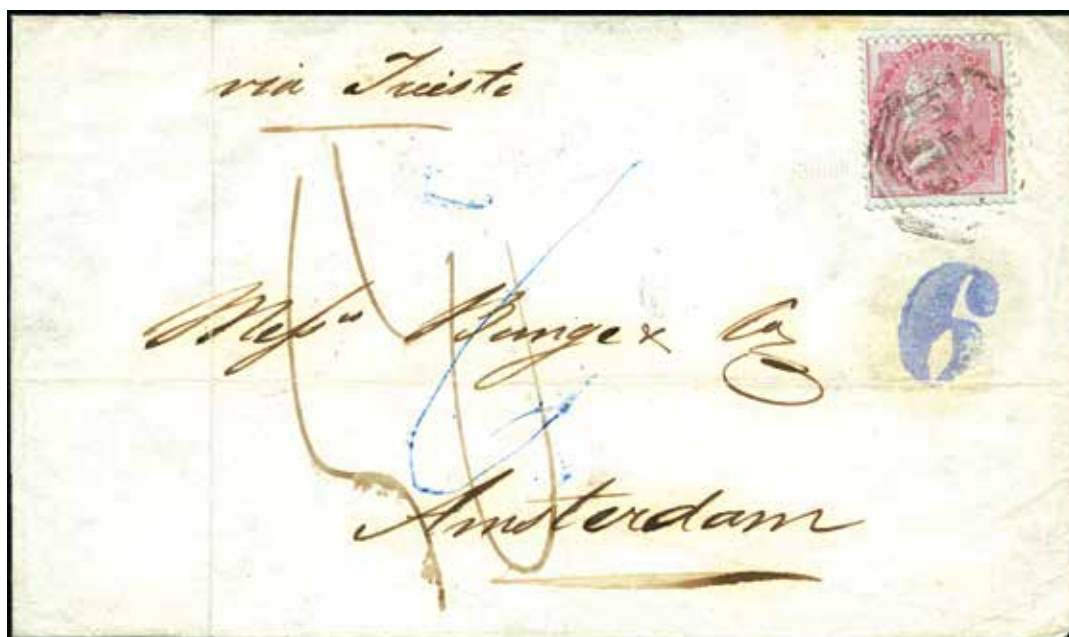 via Trieste
6
Messrs Bunge & Co
Amsterdam